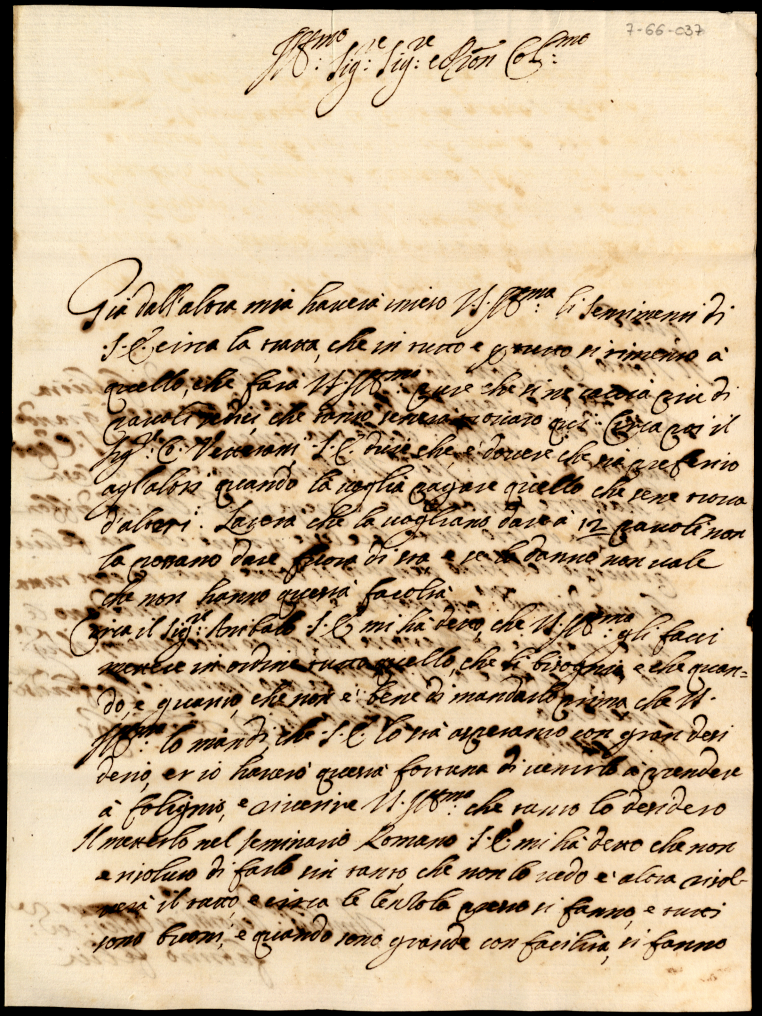 7-66-037
Ill:mo Sig:re Sig:re e Pron Col:mo
Già dall'altra mia haverà inteso V.S. Ill:ma li sentimenti di
S.E. circa la tratta, che in tutto e per tutto si rimette a
quello, che farà V.S. Ill:ma pure che si ne caccia più di
pauoli sedici, che tanto se trovato qui. Circa poi il
Sig:r C. Vetterani, S.E. dice che, è dovere che sia preferito
agl'altri quando la voglia pagare quello che se ne trova
d'altri. L'altra che la vogliano dare a 12 pavoli non
la possano dare fuora di stà e se la danno non vale
che non hanno questa facoltà
Circa il Sig:re Anibale S.E. mi hà detto, che V.S. Ill:ma gli facci
mettere in ordine tutto quello, che li bisogna, e che quan=
do, e quanto, che non è bene di mandarlo prima che V.S.
Ill:ma lo mandi, che S.E. lo stà aspettando con gran desi
derio, et io haverò questa fortuna di venirlo à prendere
à Foligno, e riverire V.S. Ill:ma che tanto lo desidero
Il metterlo nel seminario Romano S.E. mi hà detto che non
e risoluto di farlo sin tanto che non lo vedo e alora risol-
verà il tutto, e circa le presto si fanno, e tutti
sono buoni, e quando sono grande con facilità, si fanno